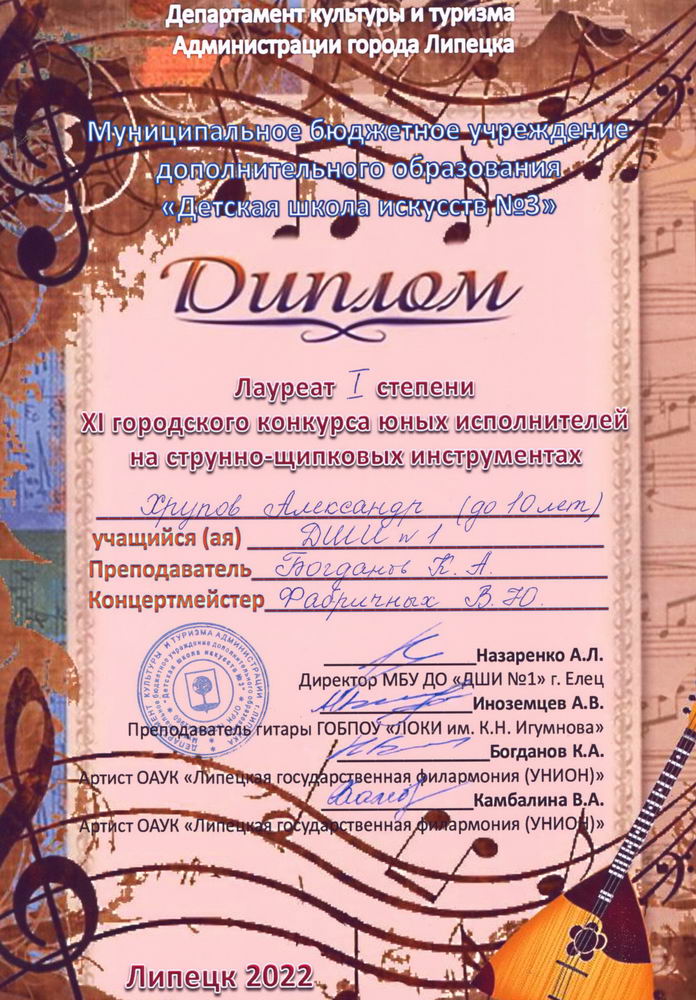 Департамент культуры и туризма
Администрации города Липецка
Муниципальное бюджетное учреждение
дополнительного образования
«Детская школа искусств №3»
Диплом
Лауреат I степени
XI городского конкурса юных исполнителей
на струнно-щипковых инструментах
Хрупов Александр (до 10 лет)
учащийся (ая) ДШИ №1
Преподаватель Богданов К. А.
Концертмейстер Фабричных В. Ю.
Назаренко А.Л.
Директор МБУ ДО «ДШИ №1» г. Елец
Иноземцев А.В.
Преподаватель гитары ГОБПОУ «ЛОКИ им. К.Н. Игумнова»
Богданов К.А.
Артист ОАУК «Липецкая государственная филармония (УНИОН)»
Камбалина В.А.
Артист ОАУК «Липецкая государственная филармония (УНИОН)»
Липецк 2022